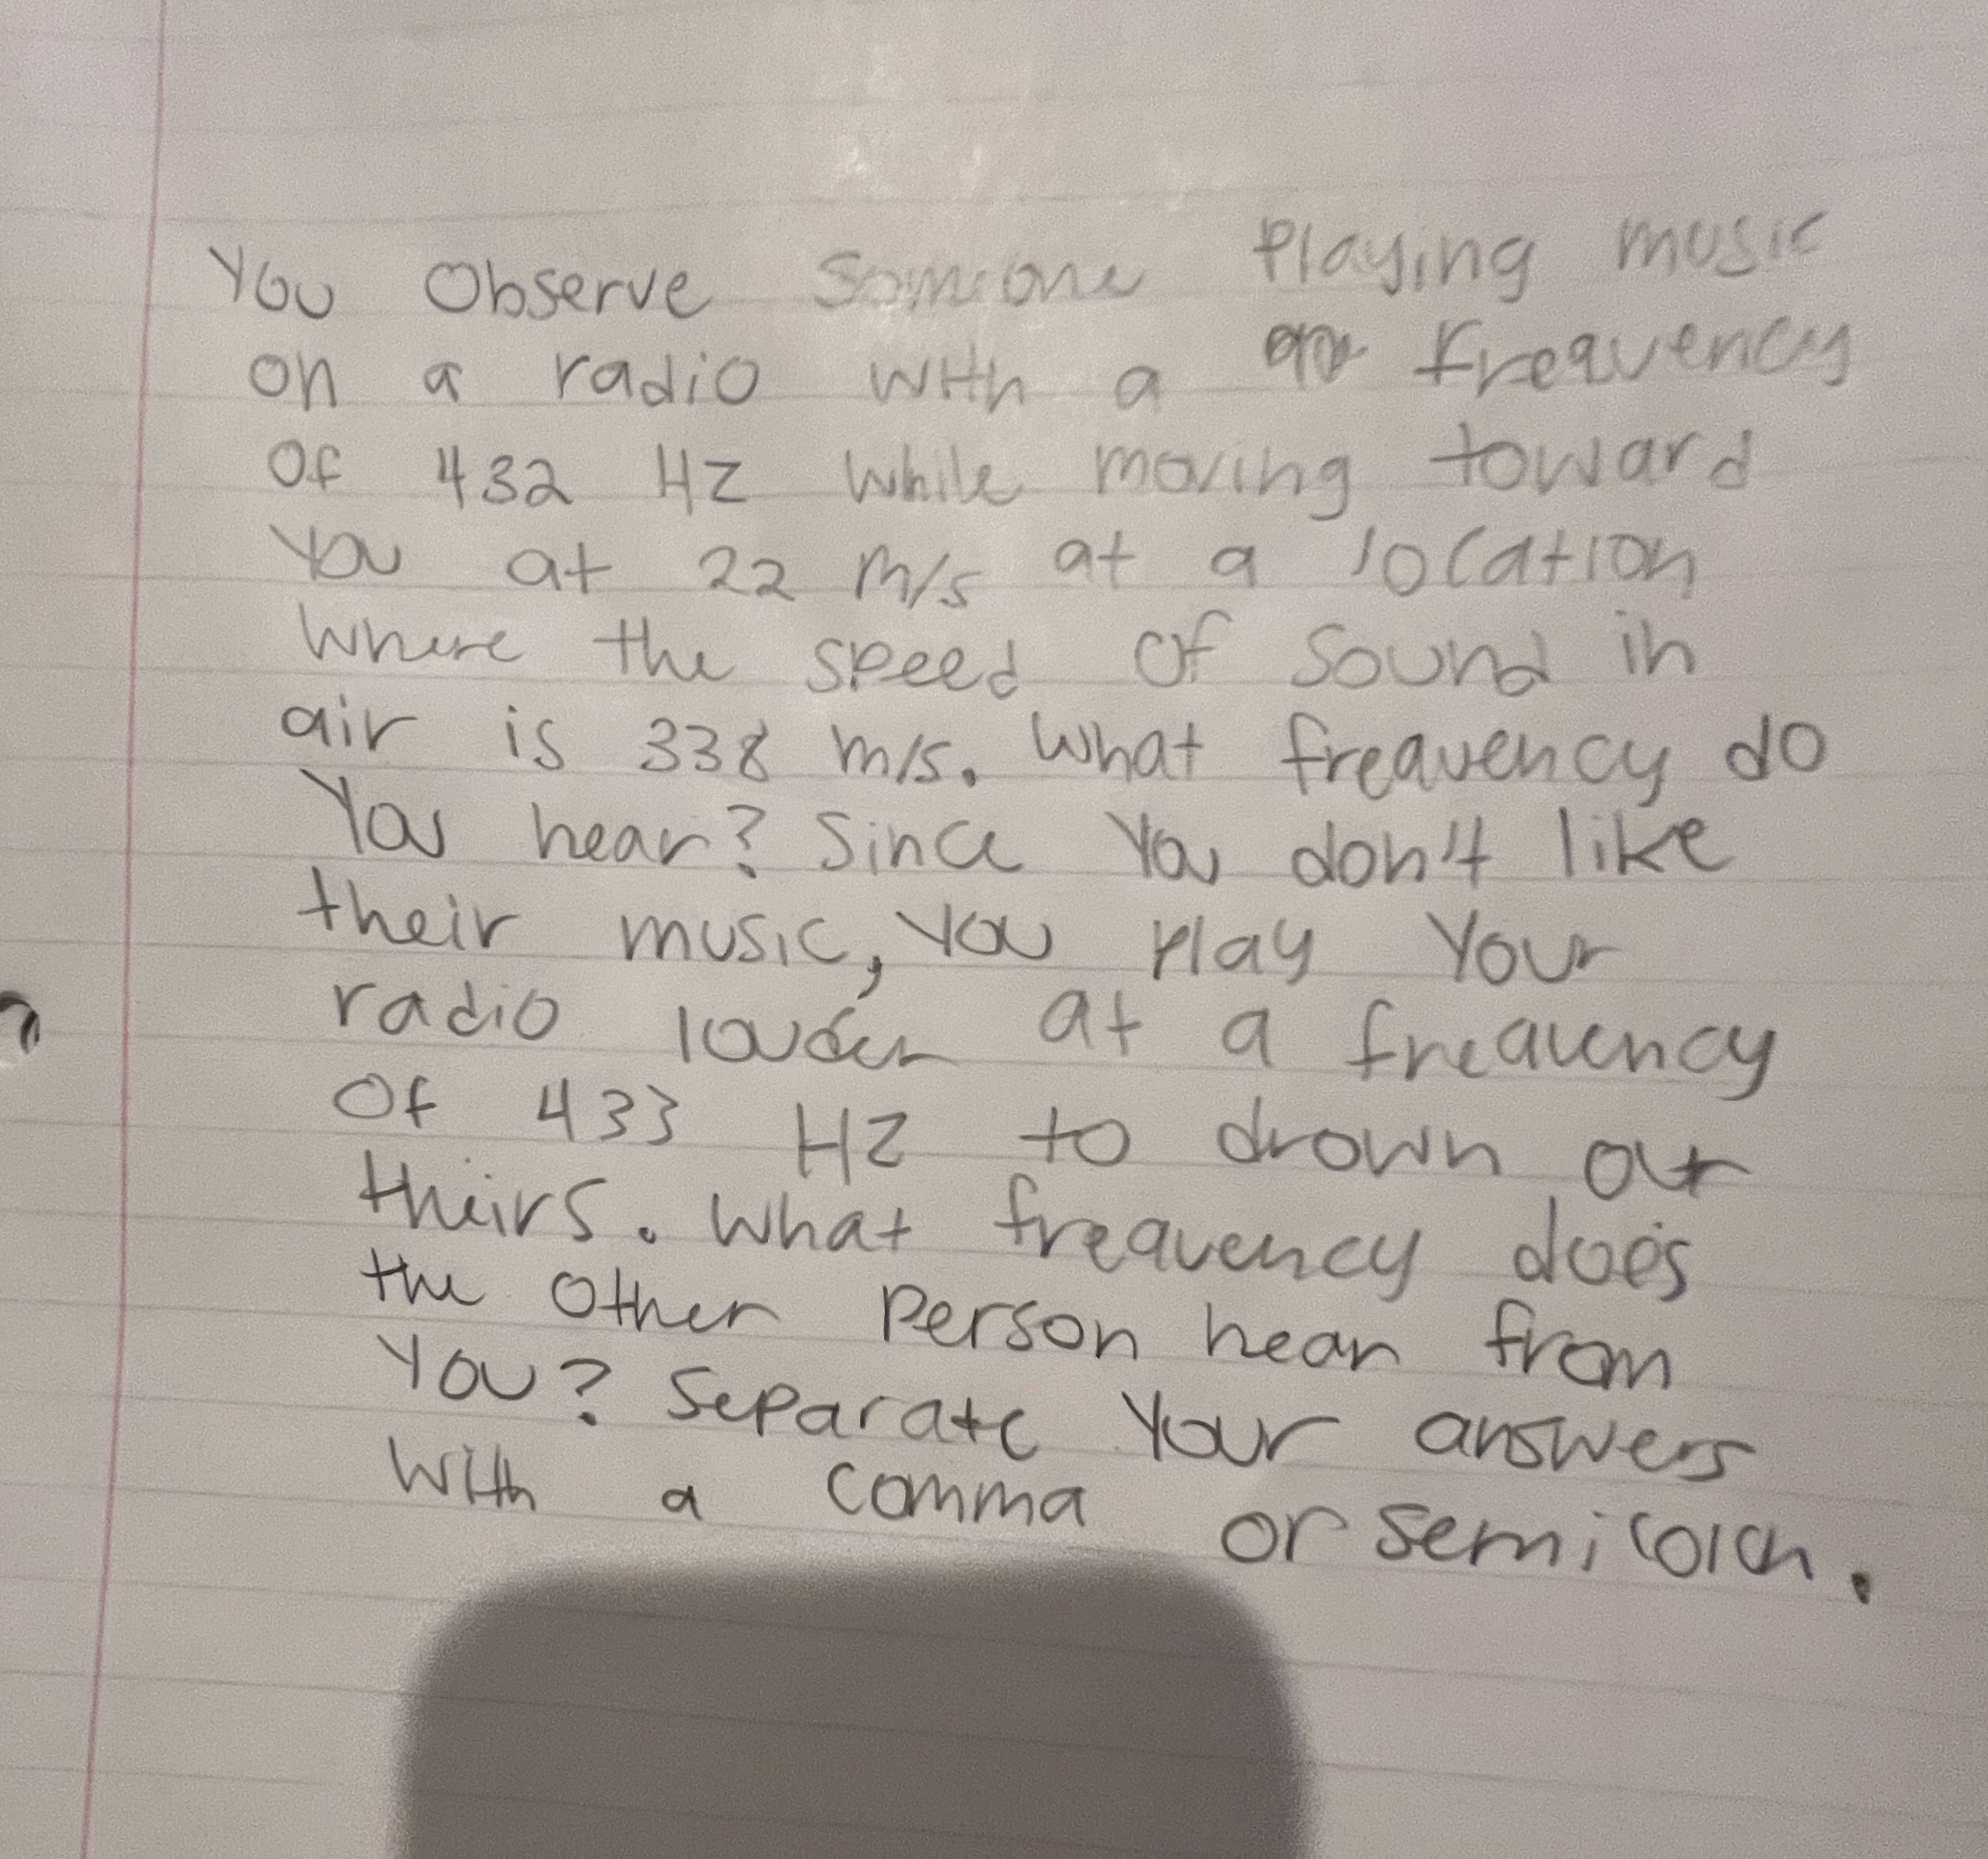 You Observe Someone Playing music
on a radio with a frequency
Of 432 HZ while moving toward
You at 22 m/s at a location
Where the speed of sound in
air is 338 m/s. What frequency do
You hear? Since You don't like
their music, You Play Your
radio louder at a frequency
Of 433 HZ to drown out
theirs. What frequency does
the Other Person hear from
You? Separate Your answers
With a comma or semicolon.